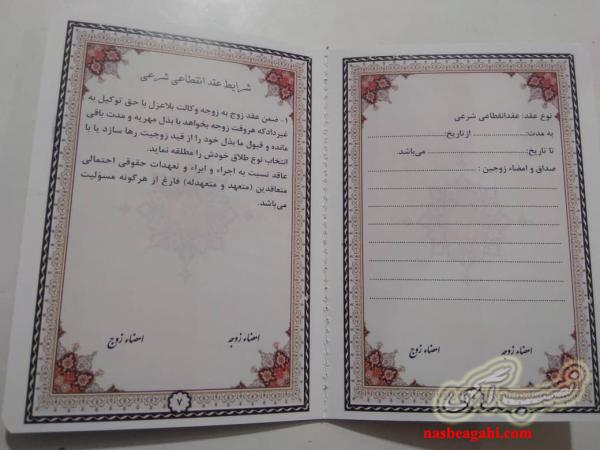 نوع عقد: عقدانقطاعی شرعی
به مدت: ............................ از تاریخ: ............................
تا تاریخ: ............................ می‌باشد.
صداق و امضاء زوجین : ............................
امضاء زوجه امضاء زوج
شرایط عقد انقطاعی شرعی
۱- ضمن عقد زوج به زوجه وکالت بلاعزل با حق توکیل به
غیر دادکه هروقت زوجه بخواهد با بذل مهریه و مدت باقی
مانده و قبول ما بذل خود را از قید زوجیت رها سازد یا با
انتخاب نوع طلاق خودش را مطلقه نماید.
عاقد نسبت به اجراء و ابراء و تعهدات حقوقی احتمالی
متعاقدین (متعهد و متعهدله) فارغ از هرگونه مسؤلیت
می‌باشد.
امضاء زوجه امضاء زوج
۷
نصب آگهی
nasbeagahi.com